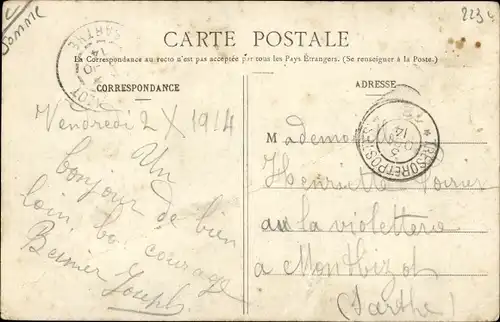 Somme
223
CARTE POSTALE
La Correspondance au recto n'est pas acceptée par tous les Pays Étrangers. (Se renseigner à la Poste.)
CORRESPONDANCE
ADRESSE
SARTHE
14
TRESOR ET POSTES
5
14
Vendredi 2 X 1914
Un
bonjour de bien
loin, bon courage
Joseph
Mademoiselle
Henriette
au la violetterie
a Montbizot
(Sarthe)